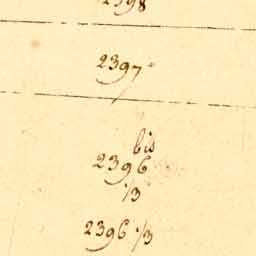 2398
2397
bis
2396
1/3
2396 1/3